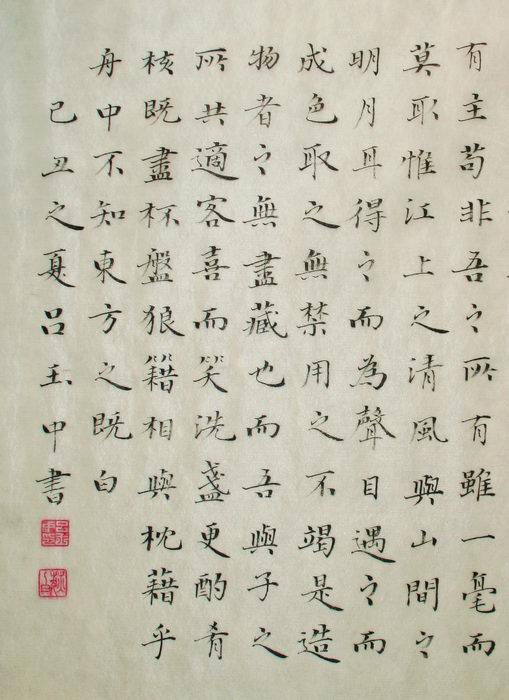 有主苟非吾之所有雖一毫而
莫取惟江上之清風與山間之
明月耳得之而為聲目遇之而
成色取之無禁用之不竭是造
物者之無盡藏也而吾與子之
所共適客喜而笑洗盞更酌肴
核既盡杯盤狼籍相與枕藉乎
舟中不知東方之既白
己丑之夏呂玉中書